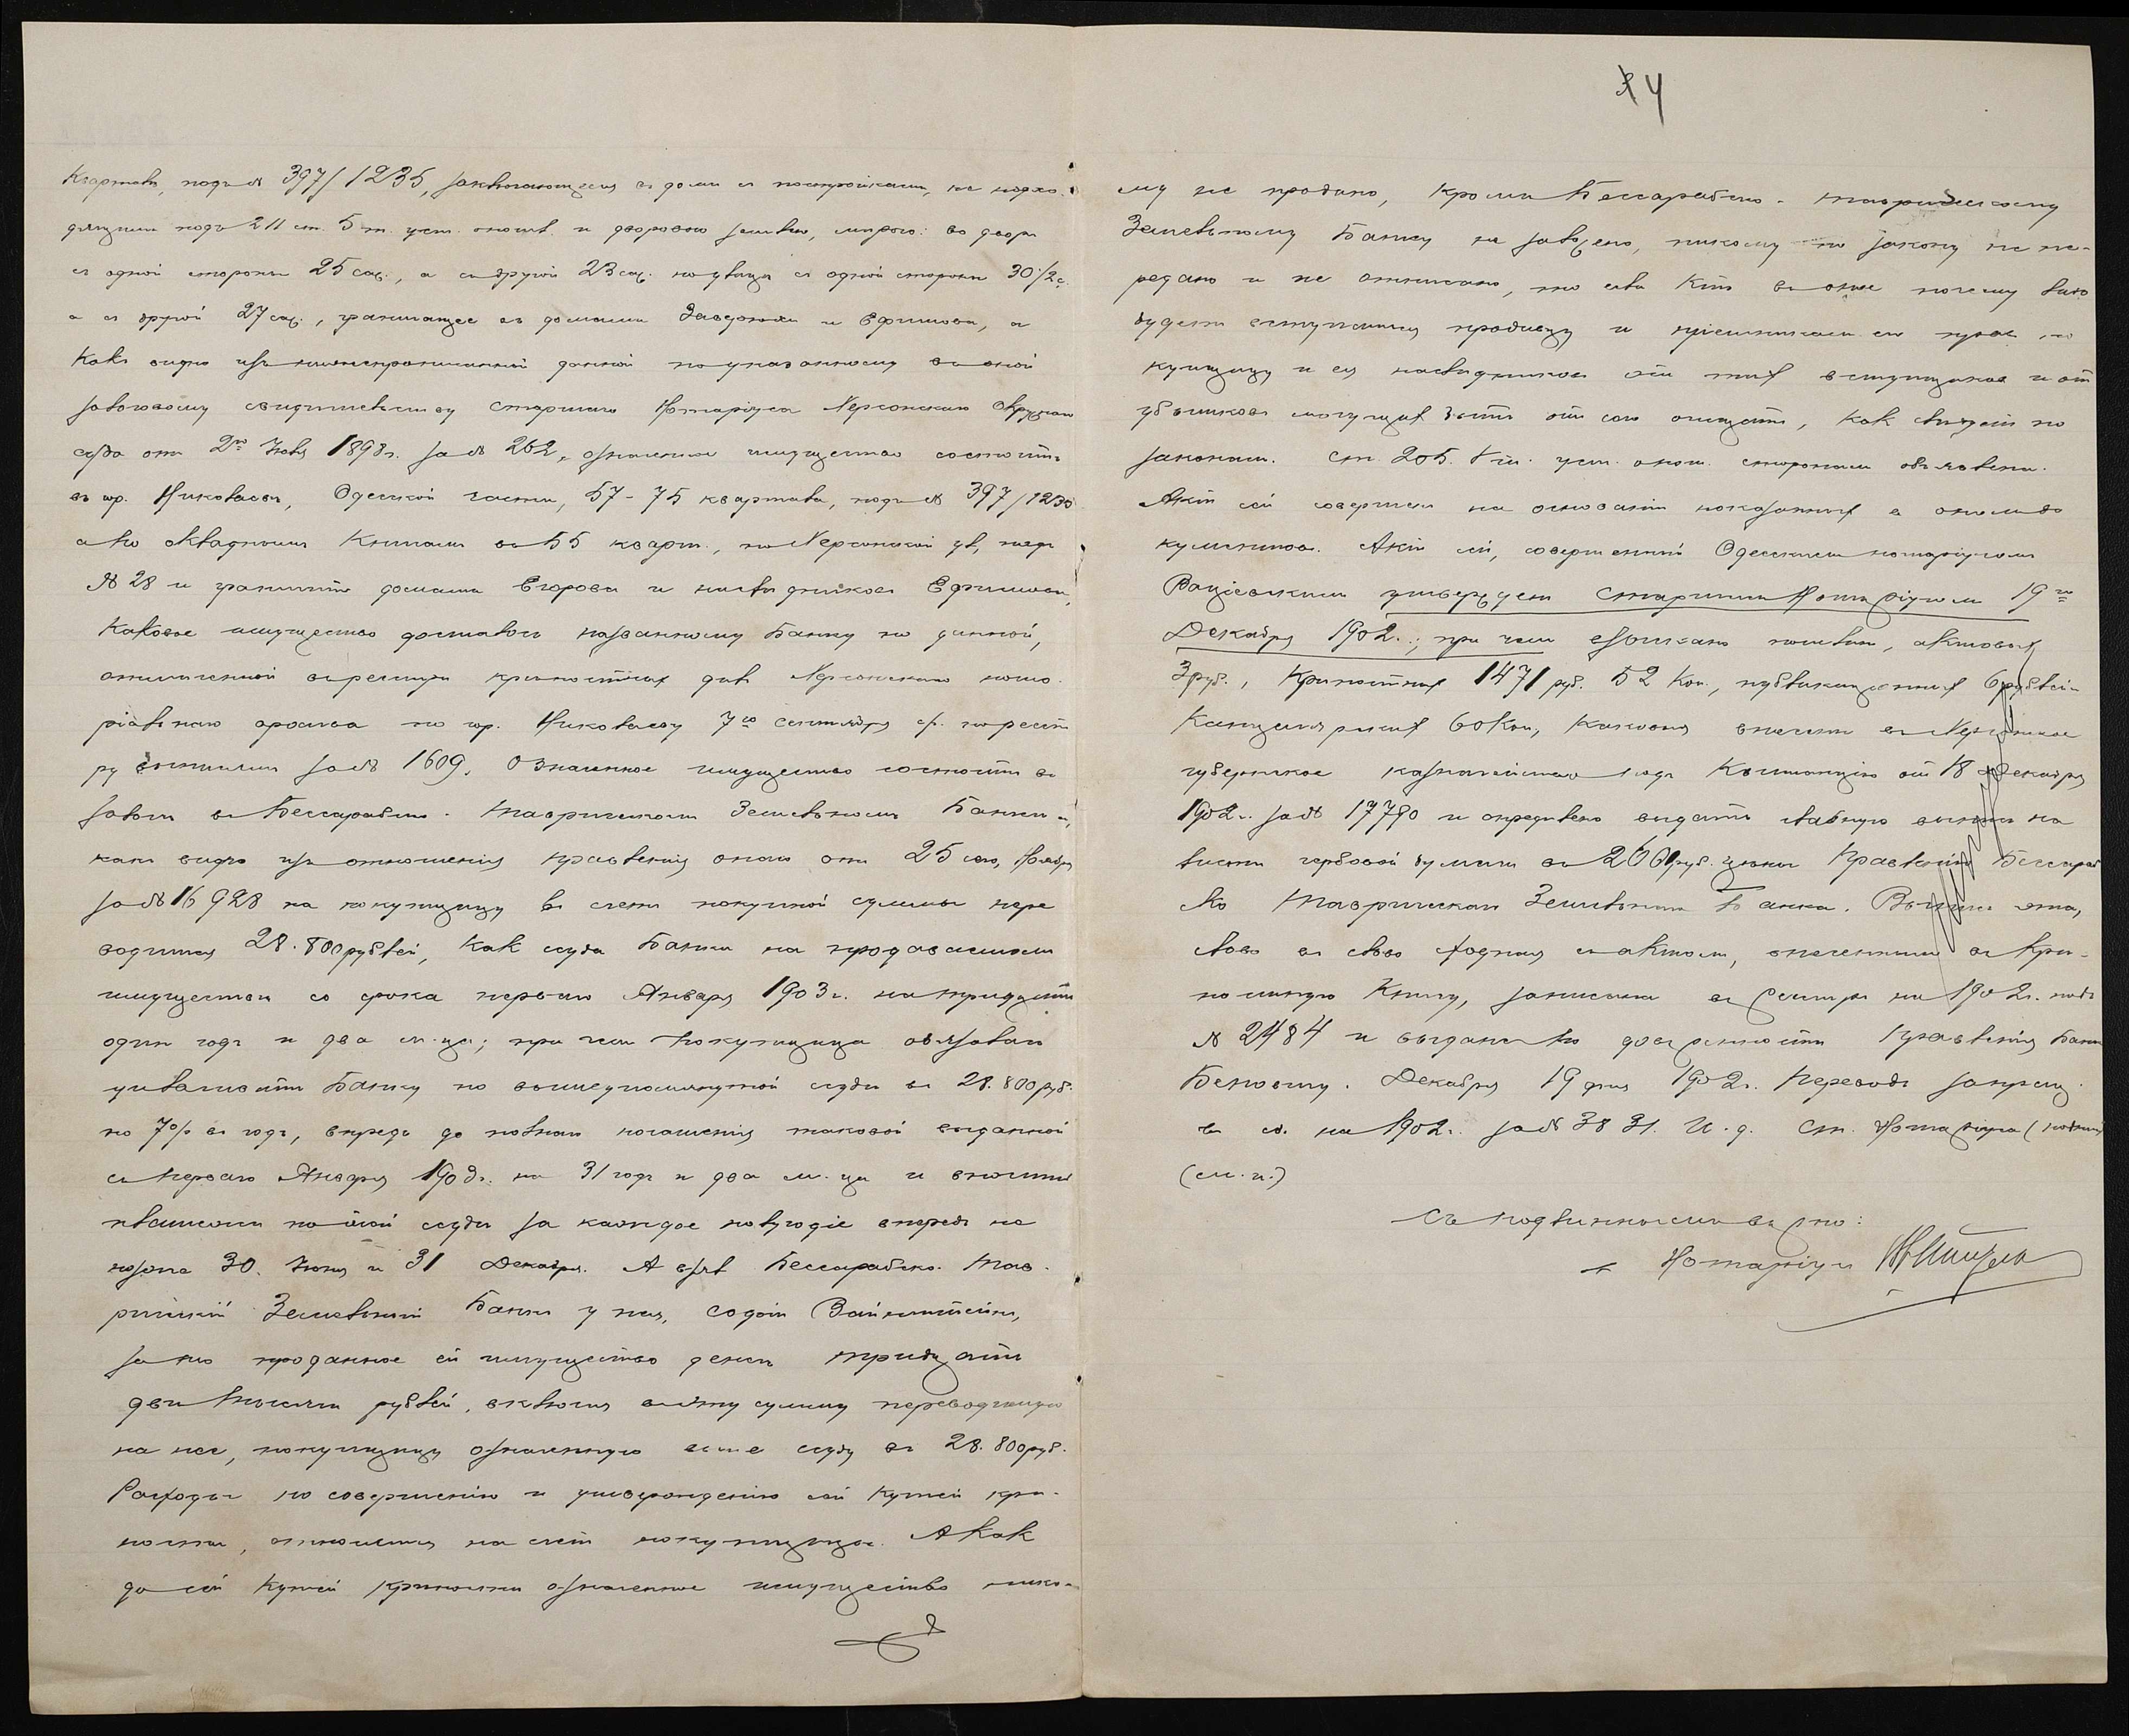 4
квартала, подъ № 397/1235, заключающееся въ доме съ постройками, не подхо-
дящими подъ 211 ст. 5 т. уст. о пошл. и дворовою землею, мерою: во дворе
съ одной стороны 25 саж., а съ другой 23 саж. по улице съ одной стороны 30 1/2 с.
а съ другой 27 саж., граничащее съ домами и Ефимова, а
какъ видно изъ нижепрописанной данной по указанному въ оной
залоговому свидетельству Старшаго Нотаріуса Херсонскаго Окружнаго
суда отъ 2го 1898 г. за № 262, означенное имущество состоитъ
въ гор. Николаеве, Одесской части, 57-75 квартала, подъ № 397/1235
а по окладнымъ книгамъ въ 55 кварт., по Херсонской ул., подъ
№ 28 и граничитъ домами Егорова и наследниковъ Ефимова,
каковое имущество досталось названному Банку по данной,
отмеченной въ реестре крепостныхъ делъ Херсонскаго нота-
ріальнаго архива по гор. Николаеву 7го Сентября с/г. по реест-
ру за № 1609. Означенное имущество состоитъ въ
залоге въ Бессарабско-Таврическомъ Земельномъ Банке и,
какъ видно изъ отношенія правленія онаго отъ 25 сего, Ноября
за № 16928 на покупщицу въ счетъ покупной суммы пере-
водится 28.800 рублей, какъ ссуда Банка на продаваемомъ
имуществе со срока перваго Января 1903 г. на тридцать
одинъ годъ и два м-ца; при чемъ покупщица обязана
уплачивать Банку по вышеупомянутой ссуде въ 28.800 руб.
по 7% въ годъ, впредь до полнаго погашенія таковой выданной
съ перваго Января 1903 г. на 31 годъ и два м-ца и вносить
платежи по этой ссуде за каждое полугодіе впередъ не
позже 30 Іюня и 31 Декабря. А взялъ Бессарабско-Тав-
рическій Земельный Банкъ у нея, Вайнштейнъ,
за это проданное ей имущество денегъ тридцать
две тысячи рублей, включая въ эту сумму переводимую
на нее, покупщицу означенную выше ссуду въ 28.800 руб.
Расходы по совершенію и утвержденію сей купчей кре-
пости, относятся на счетъ покупщицы. А какъ
до сей купчей крепости означенное имущество нико-
му не продано, кроме Бессарабско-Таврическому
Земельному Банку не заложено, никому по закону не пе-
редано и не отписано, то если кто въ оное почему либо
будетъ вступаться продавцу и преемникамъ его права, то
купщицу и ея наследниковъ отъ техъ вступщиковъ и отъ
убытковъ могущихъ быть отъ сего очищать, какъ следуетъ по
законамъ. Ст. 205. V т. уст. о пош. сторонамъ объявлена.
Актъ сей совершенъ на основаніи показанныхъ въ ономъ до-
кументовъ. Актъ сей, совершенный Одесскимъ нотаріусомъ
утвержденъ Старшимъ Нотаріусомъ 19го
Декабря 1902 г.; при чемъ взыскано пошлинъ, актовыхъ
3 руб., крепостныхъ 1471 руб. 52 коп., публикаціонныхъ 6 рублей
канцелярскихъ 60 коп., каковыя внесены въ Херсонское
губернское казначейство подъ квитанцію отъ 18 Декабря
1902 г. за № 17790 и определено выдать главную выпись на
листе гербовой бумаги въ руб. цены Правленію Бессараб-
ско Таврическаго Земельнаго Банка. Выпись эта,
слово въ слово сходная съ актомъ, внесеннымъ въ кре-
постную книгу, записана въ реестре на 1902 г. подъ
№ 2484 и выдана по доверенности Правленія Банка
Декабря 19 дня 1902 г. Переводъ запрещ.
въ сб. на 1902 г. за № 3831. И. д. Ст. Нотаріуса (подпись)
(м. п.)
Съ подлиннымъ верно:
Нотаріусъ